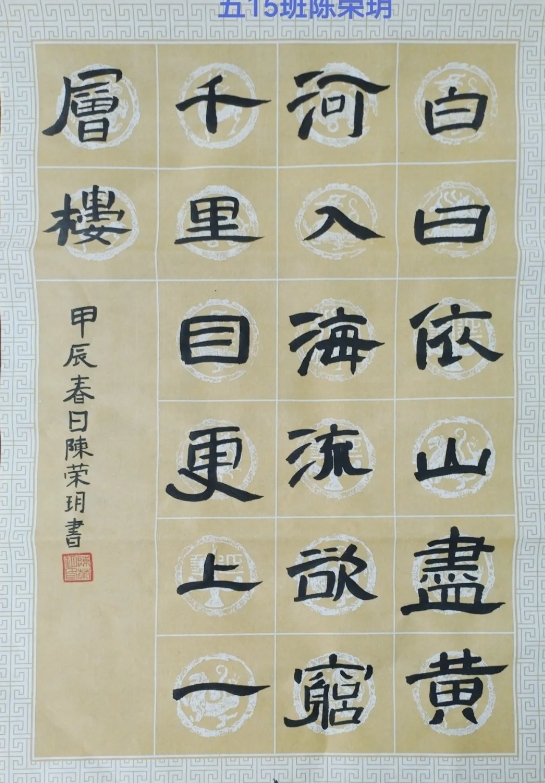 五15班陈荣玥
白日依山盡黄
河入海流欲窮
千里目更上一
層樓
甲辰春日陳荣玥書